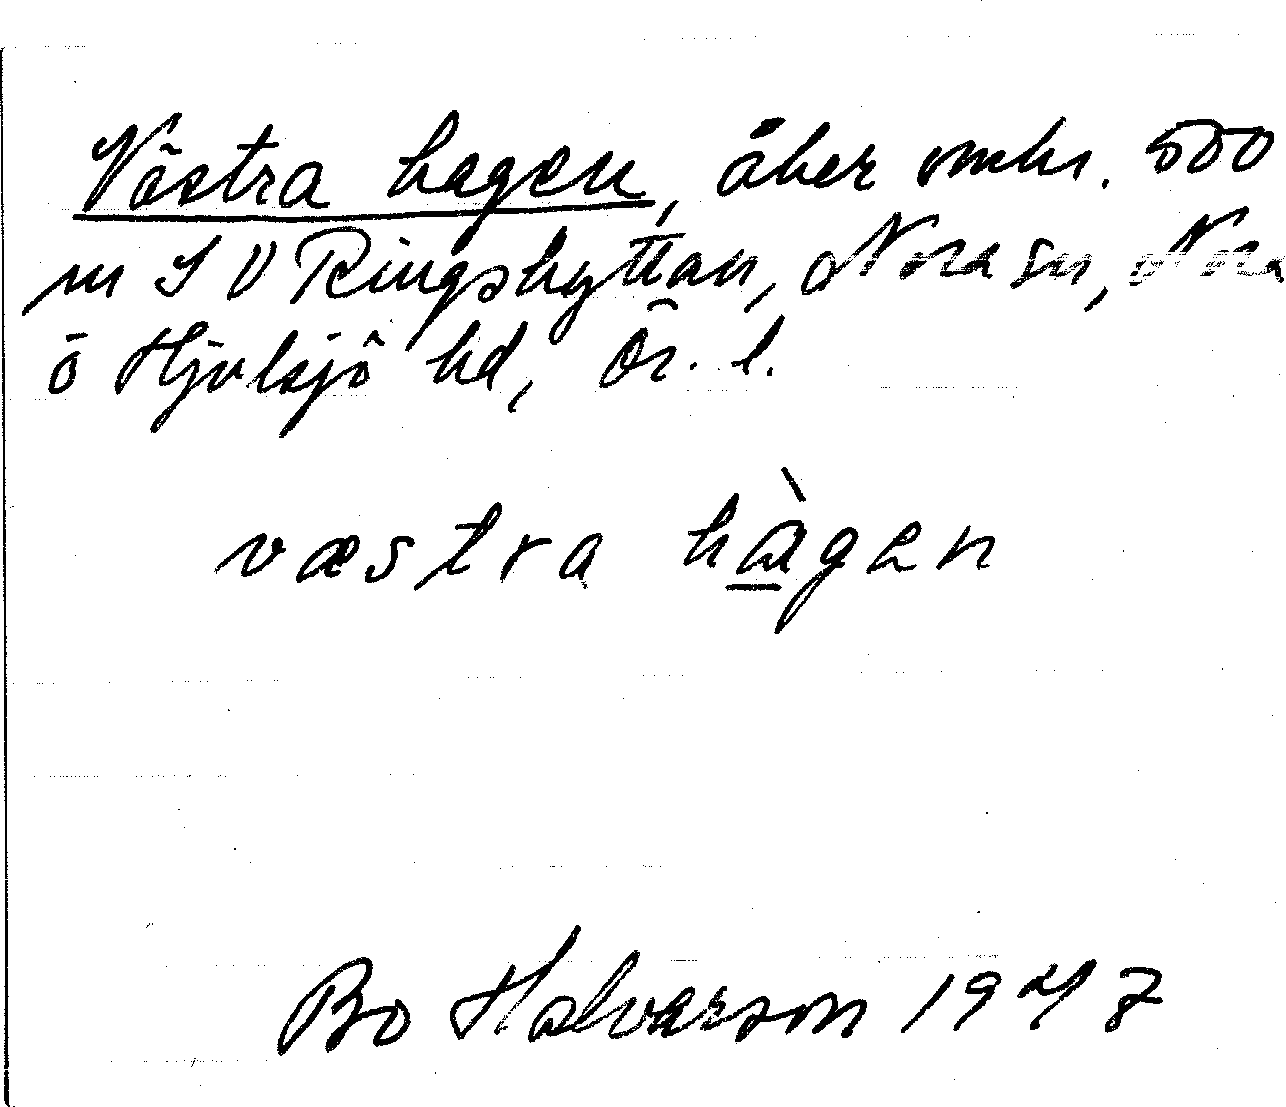 Västra hagen, åker omkr. 500
m SV Ringshyttan, Nora sn, Nora
o Hjulsjö hd, Ör. l.
væstra hàgen
Bo Halvarson 1947